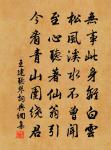 無事此身離白雲
松風溪水不曾聞
至心聽著仙翁引
今看青山圍繞君
王建聽琴詞典網集